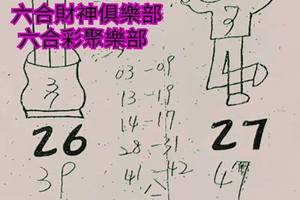 六合財神俱樂部
六合彩聚樂部
3
3
4
03-09
13-19
14-17
28-31
41-42
26
27
39
47